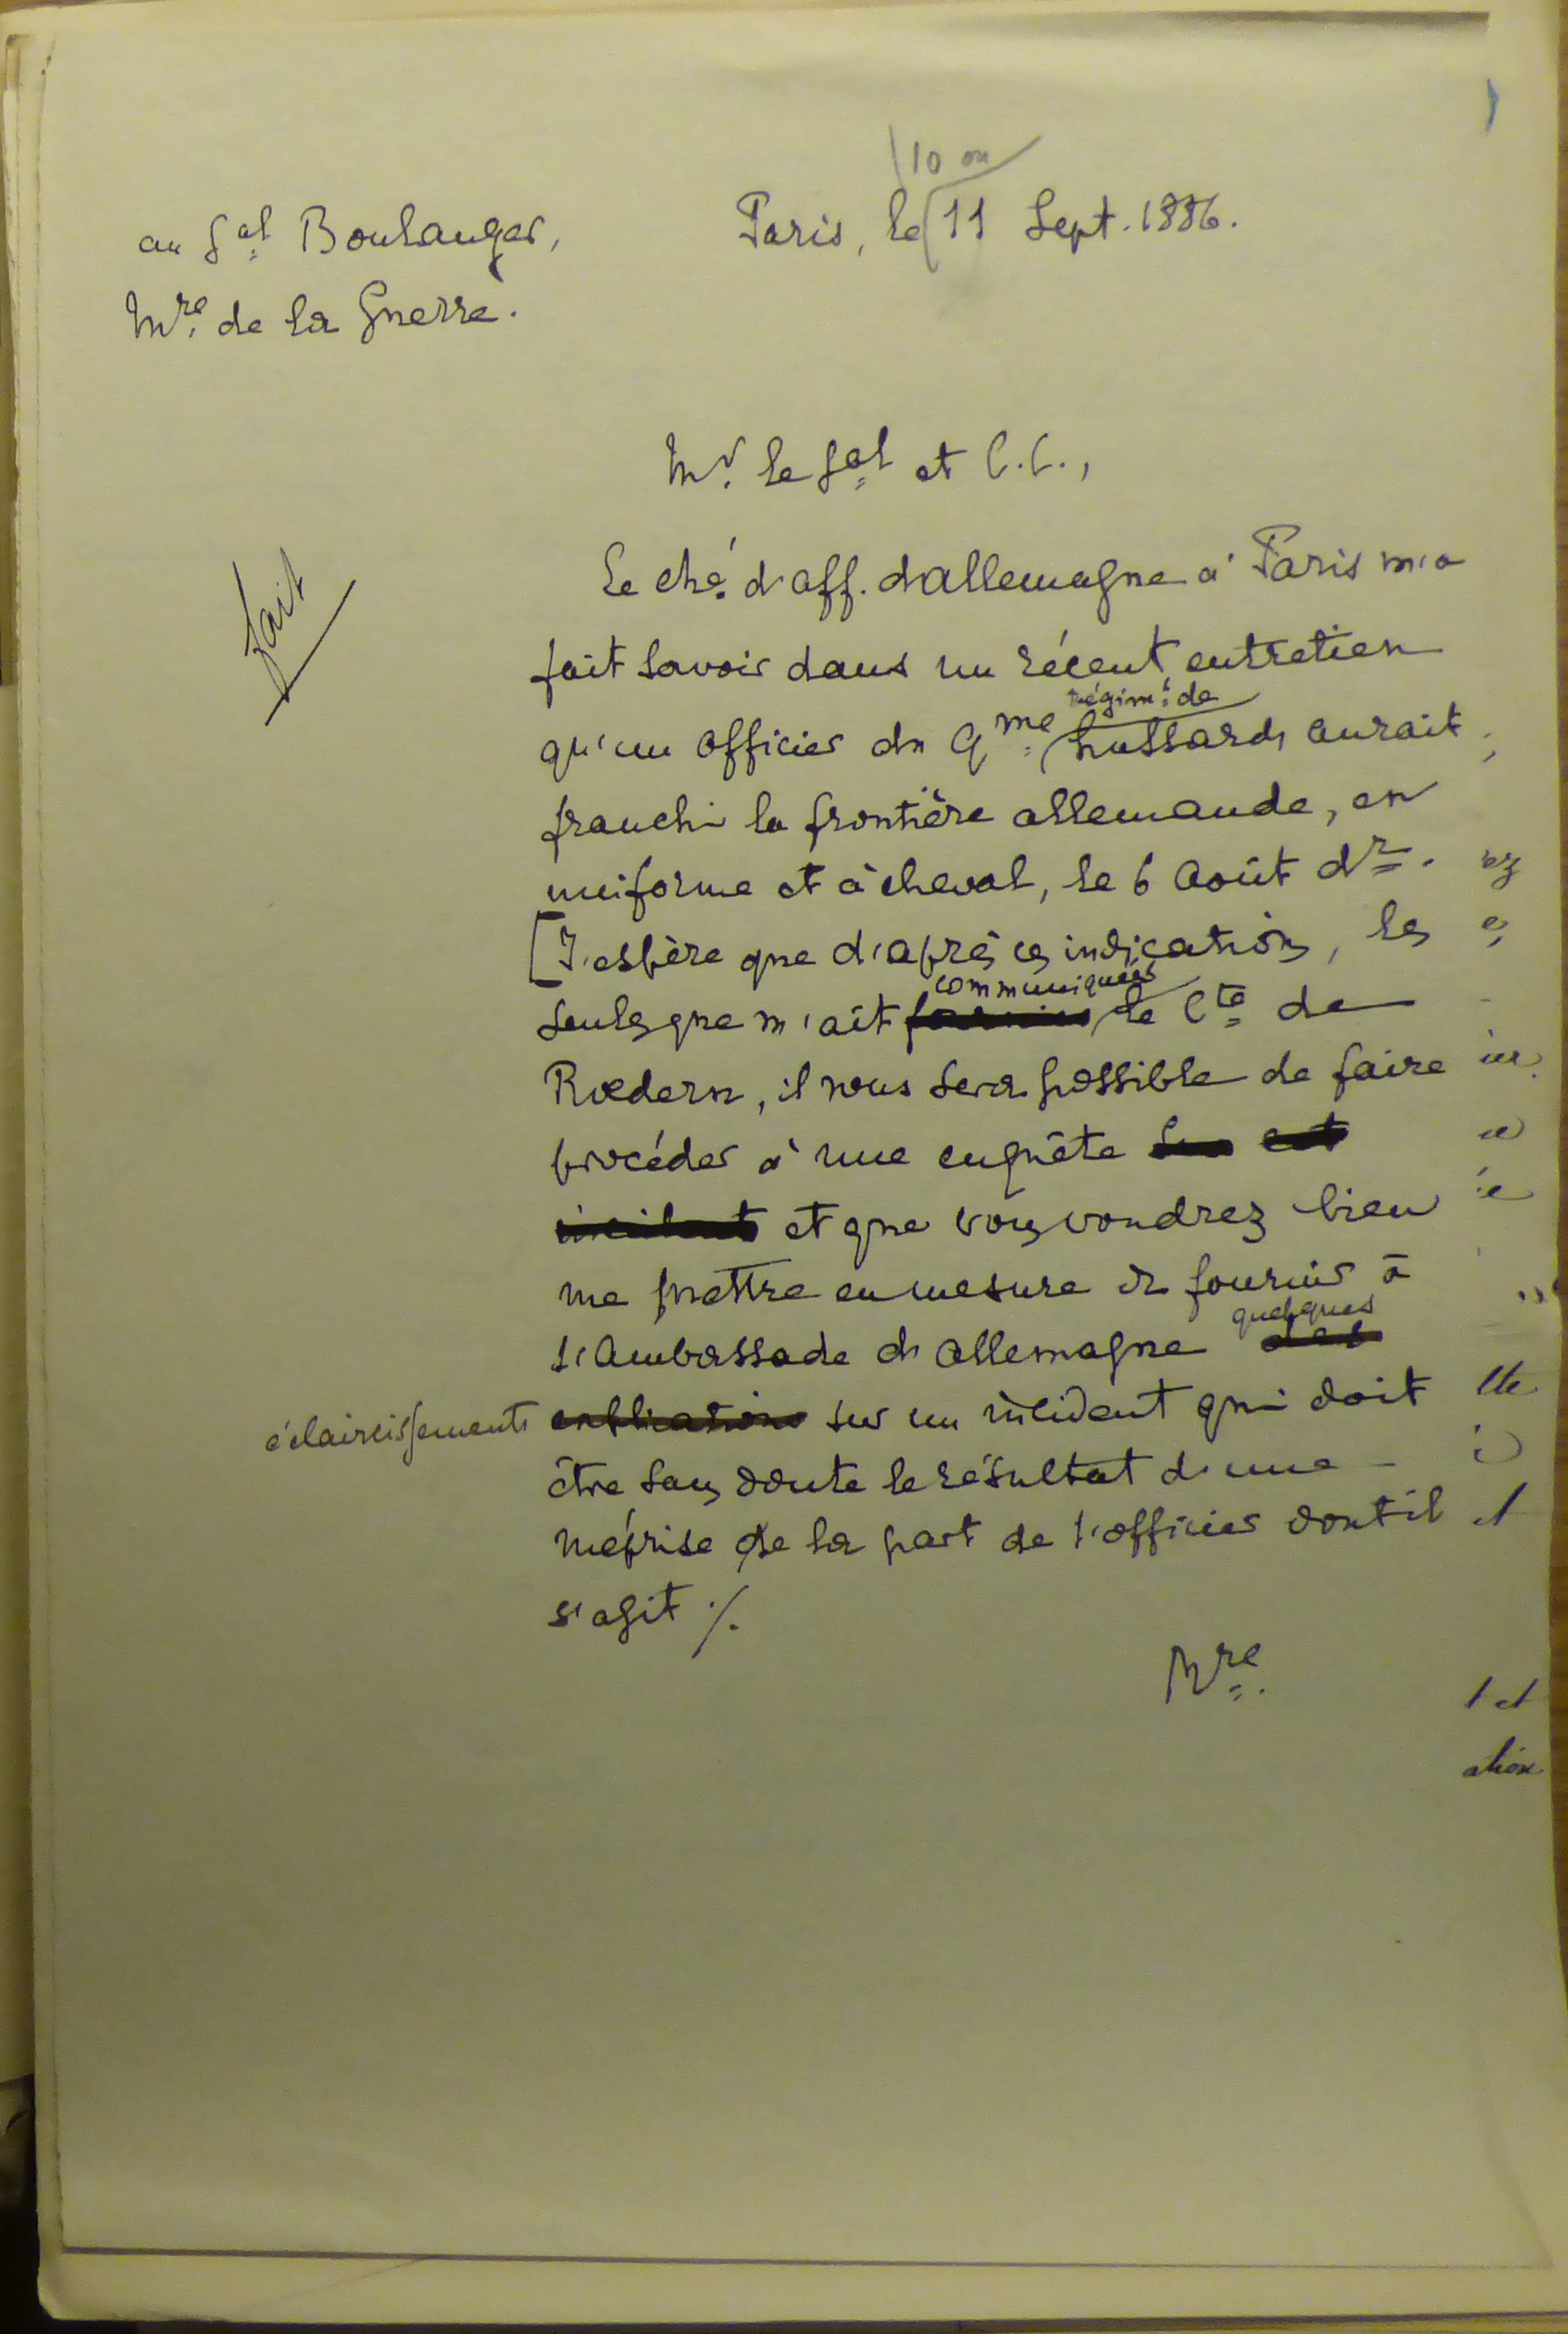 10 ou
au Gal Boulanger,
Mre de la Guerre.
Paris, le 11 Sept. 1886.
Mr. le Gal et C.C.,
fait
Le ché d'aff. d'allemagne à Paris m'a
fait savoir dans un récent entretien
régimt de
qu'un officier du 9me hussards aurait
franchi la frontière allemande, en
uniforme et à cheval, le 6 Août dr.
[J'espère que d'après ces indications, les
communiquées
seules que m'ait fournies le Cte de
Rœdern, il nous sera possible de faire
procéder à une enquête sur cet
incident et que vous voudrez bien
me mettre en mesure de fournir à
quelques
l'Ambassade d'allemagne des
éclaircissements explications sur un incident qui doit
être sans doute le résultat d'une
méprise de la part de l'officier dont il
s'agit ./.
Mre.